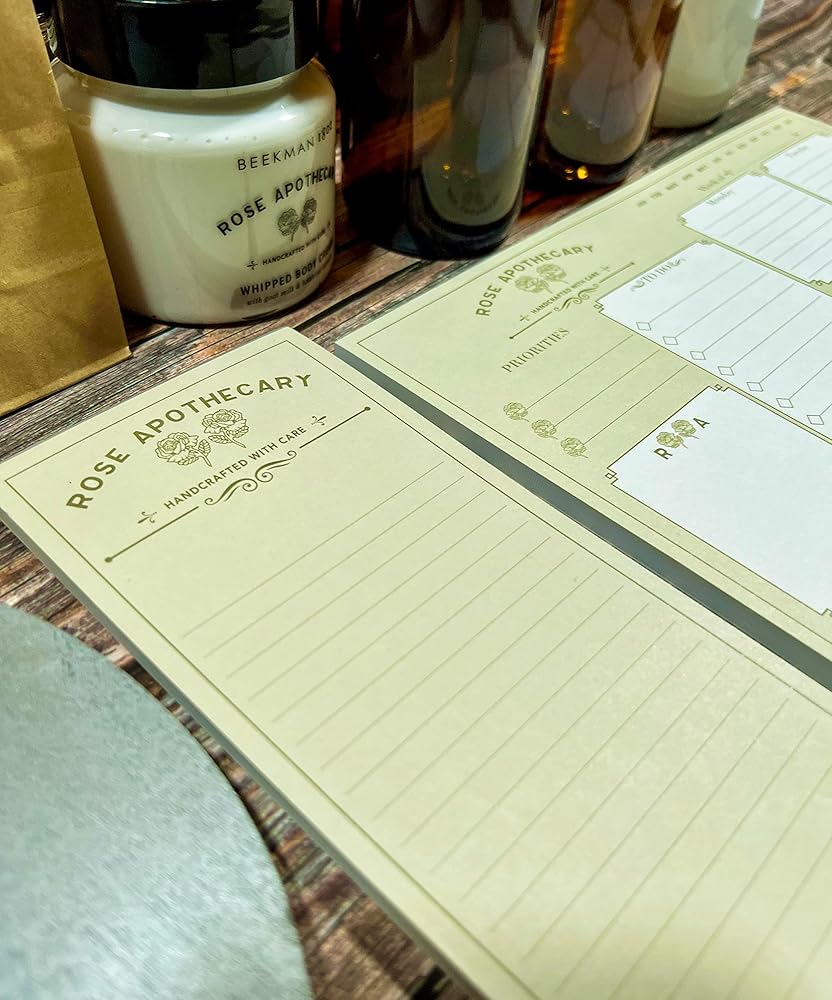 BEEKMAN 1802
ROSE APOTHECARY
HANDCRAFTED WITH CARE
WHIPPED BODY
with goat milk &
ROSE APOTHECARY
HANDCRAFTED WITH CARE
ROSE APOTHECARY
HANDCRAFTED WITH CARE
PRIORITIES
Week of
Monday
TO DO
R A